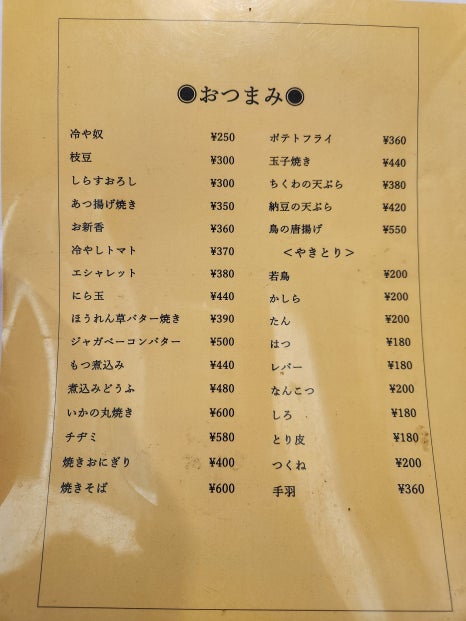 ◉おつまみ◉
冷や奴 ¥250
枝豆 ¥300
しらすおろし ¥300
あつ揚げ焼き ¥350
お新香 ¥360
冷やしトマト ¥370
エシャレット ¥380
にら玉 ¥440
ほうれん草バター焼き ¥390
ジャガベーコンバター ¥500
もつ煮込み ¥440
煮込みどうふ ¥480
いかの丸焼き ¥600
チヂミ ¥580
焼きおにぎり ¥400
焼きそば ¥600
ポテトフライ ¥360
玉子焼き ¥440
ちくわの天ぷら ¥380
納豆の天ぷら ¥420
鳥の唐揚げ ¥550
＜やきとり＞
若鳥 ¥200
かしら ¥200
たん ¥200
はつ ¥180
レバー ¥180
なんこつ ¥200
しろ ¥180
とり皮 ¥180
つくね ¥200
手羽 ¥360